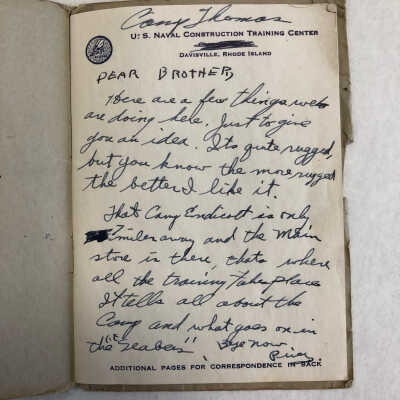 Camp Thomas
U. S. Naval Construction Training Center
Davisville, Rhode Island
DEAR BROTHER,
Here are a few things we
are doing here. Just to give
you an idea. Its quite rugged,
but you know the more rugged
the better I like it.
That Camp Endicott is only
7 miles away and the main
store is there, thats where
all the training takes place
It tells all about the
Camp and what goes on in
the "Seabees". Bye now.
ADDITIONAL PAGES FOR CORRESPONDENCE IN BACK